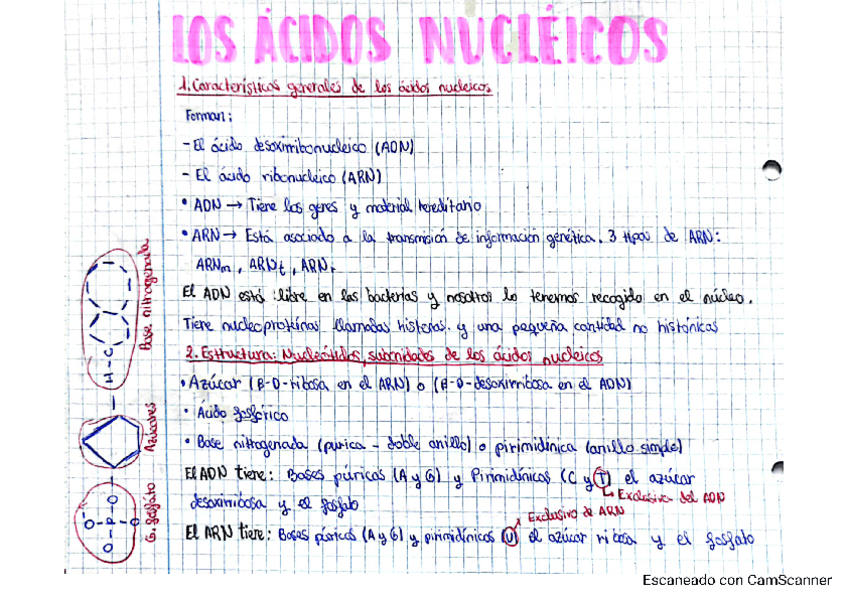 LOS ÁCIDOS NUCLÉICOS
1. Características generales de los ácidos nucleicos
Forman:
- El ácido desoxirribonucleico (ADN)
- El ácido ribonucleico (ARN)
• ADN → Tiene los genes y material hereditario
• ARN → Está asociado a la transmisión de información genética. 3 tipos de ARN:
ARNm, ARNt, ARNr
El ADN está libre en las bacterias y nosotros lo tenemos recogido en el núcleo.
Tiene nucleoproteínas llamadas histonas y una pequeña cantidad no histónicas
2. Estructura: Nucleótidos, subunidades de los ácidos nucleicos
• Azúcar (β-D-ribosa en el ARN) o (β-D-desoxirribosa en el ADN)
• Ácido fosfórico
• Base nitrogenada (purica - doble anillo) o pirimidínica (anillo simple)
El ADN tiene: Bases púricas (A y G) y Pirimidínicas (C y T) el azúcar
Exclusiva del ADN
desoxirribosa y el fosfato
Exclusivo de ARN
El ARN tiene: Bases púricas (A y G) y pirimidínicas (U) el azúcar ribosa y el fosfato
Base nitrogenada
H-C
Azúcares
G. fosfato
O-P-O
O
O
Escaneado con CamScanner